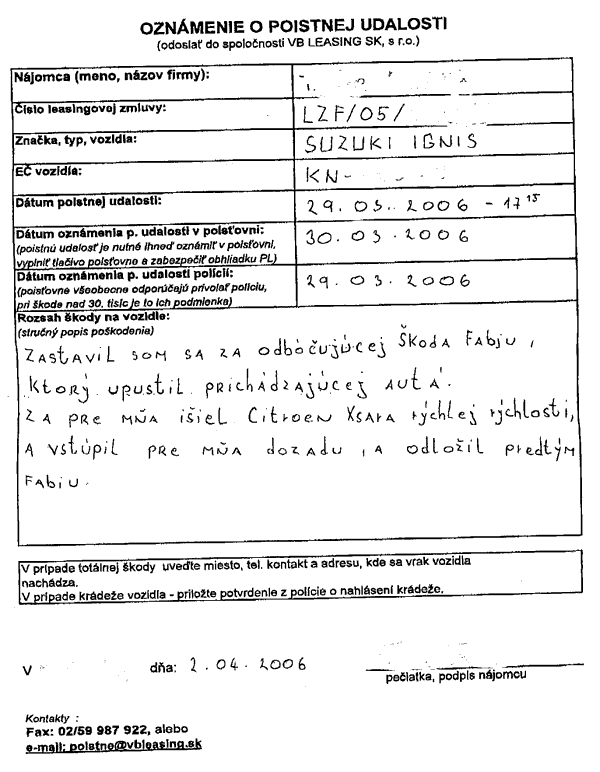 OZNÁMENIE O POISTNEJ UDALOSTI
(odoslať do spoločnosti VB LEASING SK, s r.o.)
Nájomca (meno, názov firmy):
Číslo leasingovej zmluvy: LZF/05/
Značka, typ, vozidla: SUZUKI IGNIS
EČ vozidla: KN-
Dátum poistnej udalosti: 29.03.2006 - 17 15
Dátum oznámenia p. udalosti v poisťovni: 30.03.2006
(poistnú udalosť je nutné ihneď oznámiť v poisťovni,
vyplniť tlačivo poisťovne a zabezpečiť obhliadku PL)
Dátum oznámenia p. udalosti polícii: 29.03.2006
(poisťovne všeobecne odporúčajú privolať políciu,
pri škode nad 30. tisíc je to ich podmienka)
Rozsah škody na vozidle:
(stručný popis poškodenia)
ZASTAVIL SOM SA ZA ODBOČUJÚCEJ ŠKODA FABJU,
KTORÝ UPUSTIL PRICHÁDZAJÚCEJ AUTÁ.
ZA PRE MŇA IŠIEL CITROEN XSARA RÝCHLEJ RÝCHLOSTI,
A VSTÚPIL PRE MŇA DOZADU, A ODLOŽIL PREDTÝM
FABIU.
V prípade totálnej škody uveďte miesto, tel. kontakt a adresu, kde sa vrak vozidla
nachádza.
V prípade krádeže vozidla - priložte potvrdenie z polície o nahlásení krádeže.
V dňa: 2.04.2006
pečiatka, podpis nájomcu
Kontakty :
Fax: 02/59 987 922, alebo
e-mail: poistne@vbleasing.sk